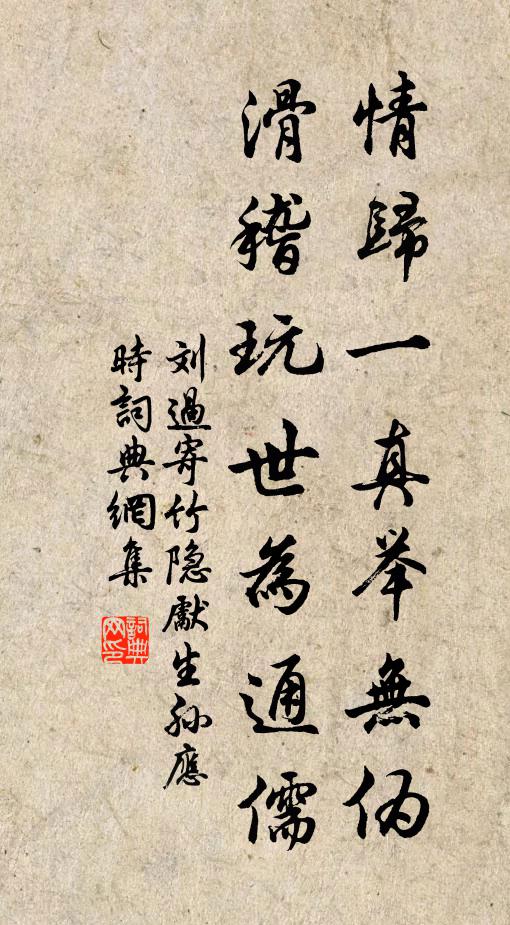 情歸一真举無偽
滑稽玩世為通儒
刘過寄竹隐處士孙應
時詞典網集
詞典網印